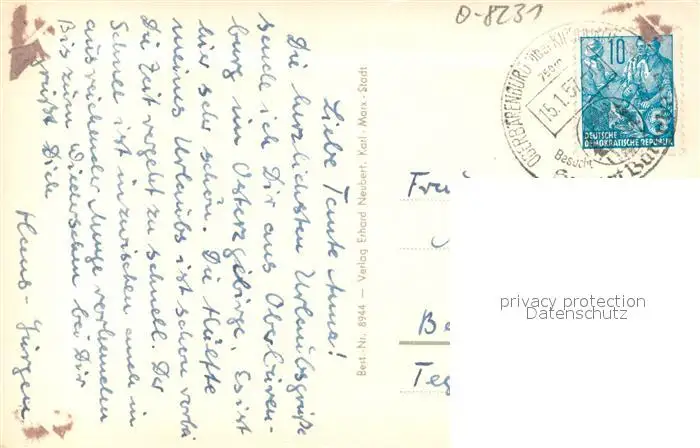 O-8231
Liebe Tante Anna!
Die herzlichsten Urlaubsgrüße
sende ich Dir aus Oberbären-
burg im Osterzgebirge. Es ist
hier sehr schön. Die Hälfte
meines Urlaubs ist schon vorbei
Die Zeit vergeht zu schnell. Der
Schnee ist inzwischen auch in
ausreichender Menge vorhanden
Bis zum Wiedersehen bei Dir
grüßt Dich
Hans-Jürgen
Best.-Nr. 8944 — Verlag Erhard Neubert, Karl-Marx-Stadt
OBERBÄRENBURG über KIPSDORF
15.1.57
Besucht
10
5
DEUTSCHE
DEMOKRATISCHE REPUBLIK
Be
Teg
privacy protection
Datenschutz